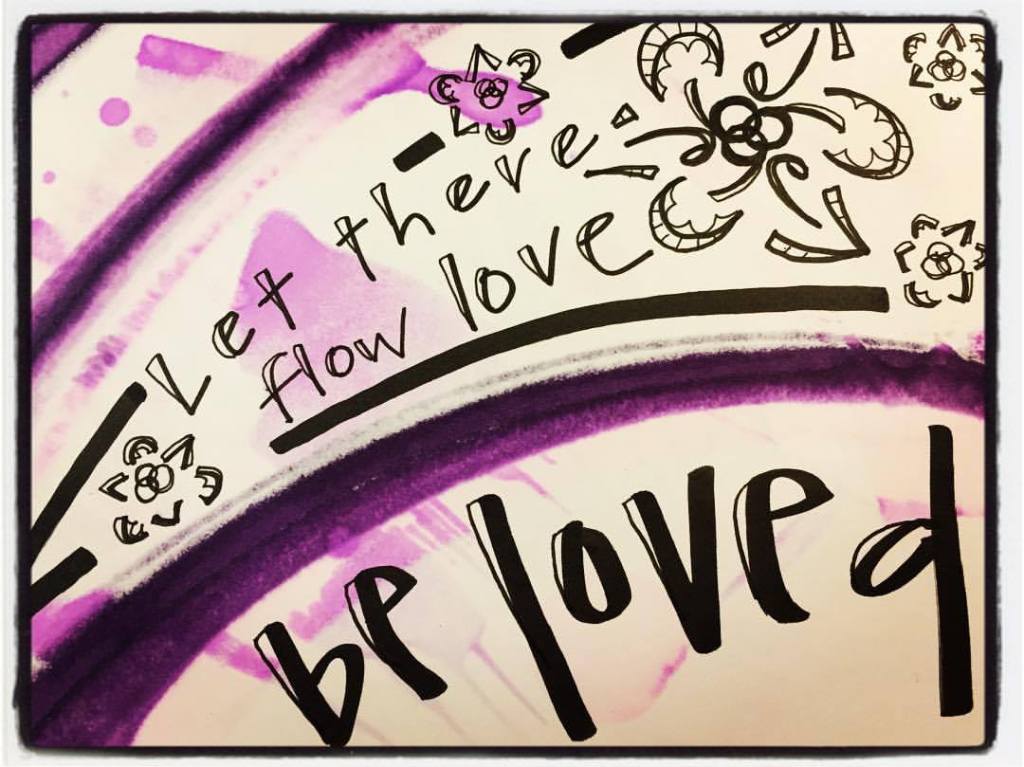 Let there
flow love
be loved